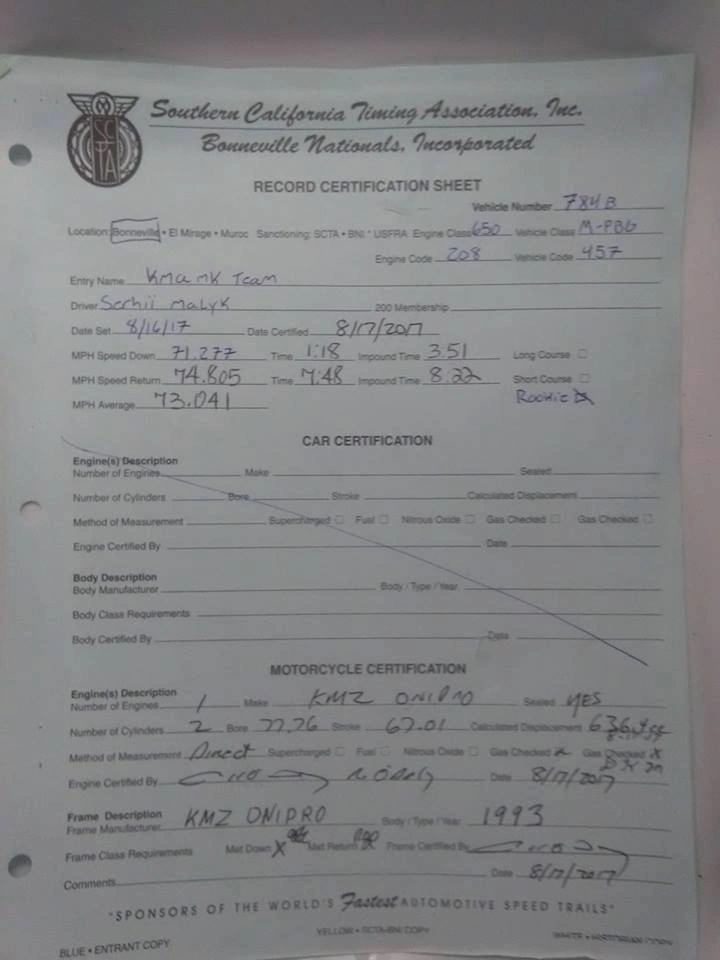 SCTA
Southern California Timing Association, Inc.
Bonneville Nationals, Incorporated
RECORD CERTIFICATION SHEET
Vehicle Number 784B
Location: Bonneville • El Mirage • Muroc Sanctioning: SCTA • BNI * USFRA Engine Class 650 Vehicle Class M-PBG
Engine Code 208 Vehicle Code 457
Entry Name KMZ MK Team
Driver Serhii Malyk 200 Membership
Date Set 8/16/17 Date Certified 8/17/2017
MPH Speed Down 71.277 Time 1:18 Impound Time 3:51 Long Course
MPH Speed Return 74.805 Time 7:48 Impound Time 8:22 Short Course
MPH Average 73.041 Rookie
CAR CERTIFICATION
Engine(s) Description
Number of Engines Make Sealed
Number of Cylinders Bore Stroke Calculated Displacement
Method of Measurement Supercharged Fuel Nitrous Oxide Gas Checked Gas Checked
Engine Certified By Date
Body Description
Body Manufacturer Body / Type / Year
Body Class Requirements
Body Certified By Date
MOTORCYCLE CERTIFICATION
Engine(s) Description
Number of Engines 1 Make KMZ DNIPRO Sealed YES
Number of Cylinders 2 Bore 77.76 Stroke 67.01 Calculated Displacement
Method of Measurement Direct Supercharged Fuel Nitrous Oxide Gas Checked Gas Checked X
Engine Certified By Date 8/17/2017
Frame Description
Frame Manufacturer KMZ DNIPRO Body / Type / Year 1993
Frame Class Requirements Met Down X Met Return Frame Certified By
Comments Date 8/17/2017
"SPONSORS OF THE WORLD'S Fastest AUTOMOTIVE SPEED TRAILS"
BLUE • ENTRANT COPY YELLOW • SCTA-BNI COPY WHITE • HISTORIAN COPY